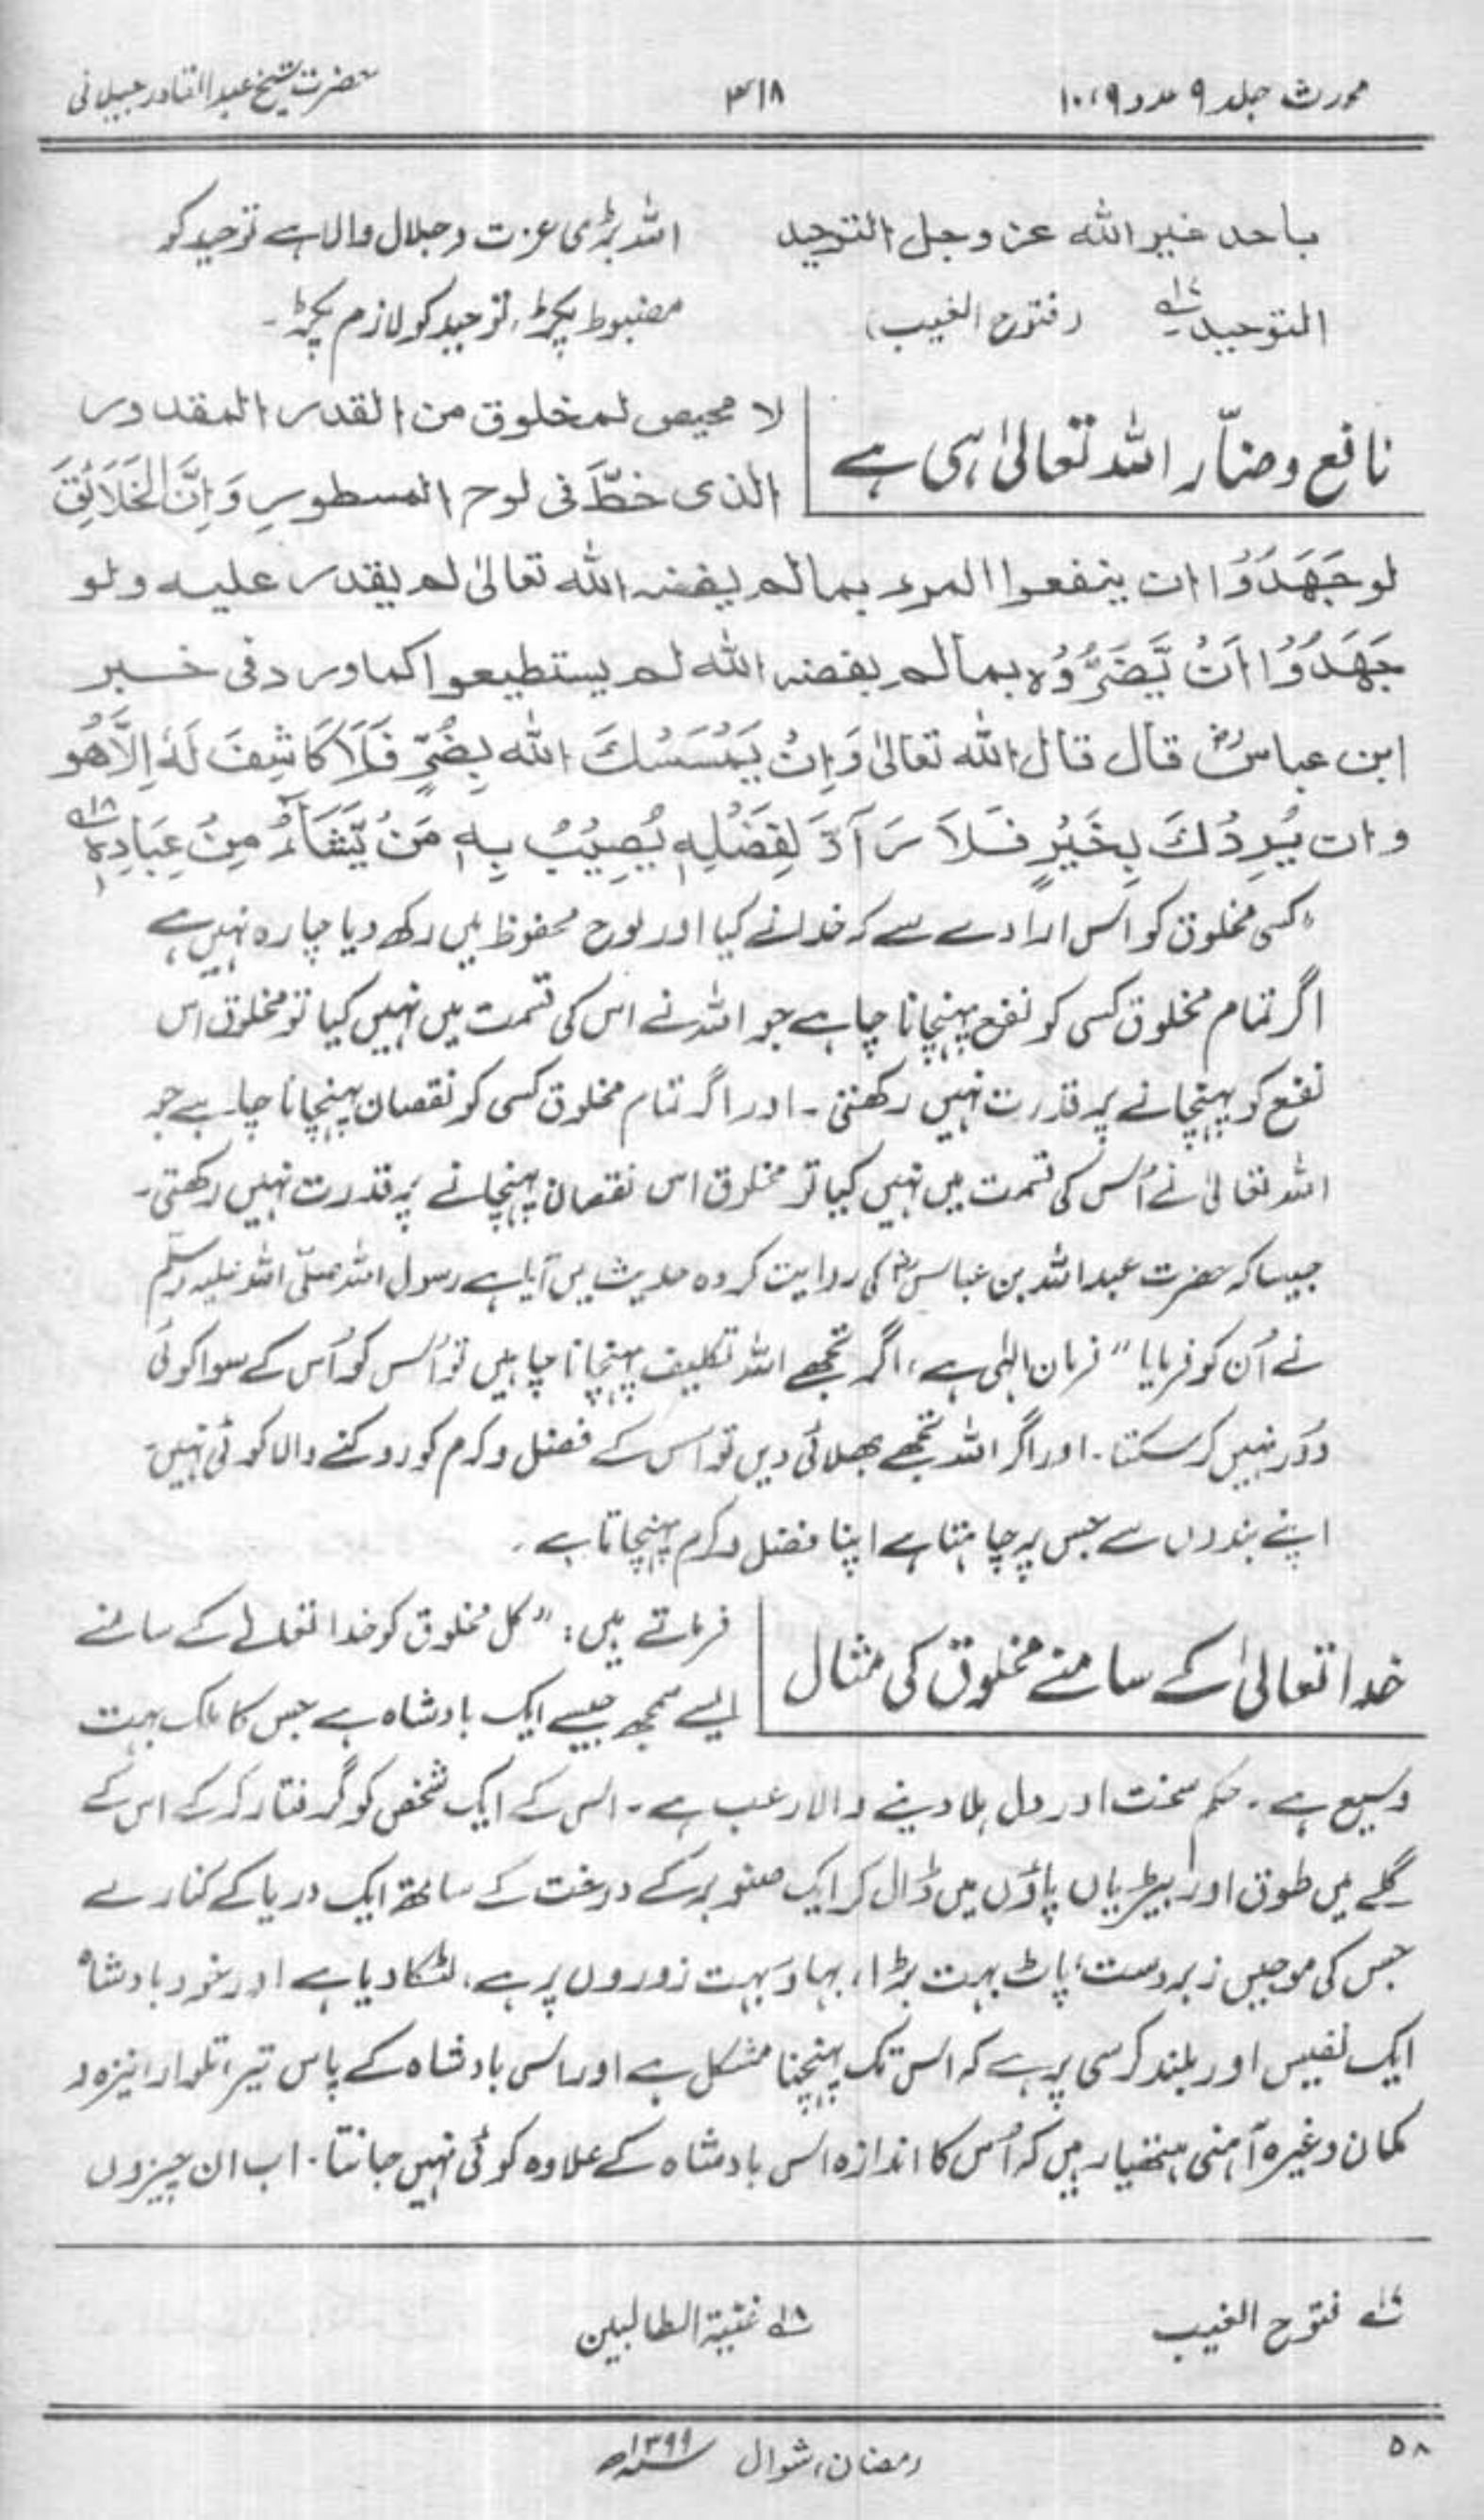 محدث جلد ۹ عدد ۹،۱۰
۴۱۸
حضرت شیخ عبدالقادر جیلانی
باحد غیر الله عز وجل التوحید
اللہ بڑی عزت و جلال والا ہے توحید کو
التوحید ۱۷؎ (فتوح الغیب)
مضبوط پکڑ، توحید کو لازم پکڑ۔
نافع و ضارّ اللہ تعالیٰ ہی ہے
لا محیص لمخلوق من القدر المقدور
الذی خطَّ فی لوح المسطور وَاِنَّ الخَلَائِقَ
لو جَهَدُوْا ان ینفعوا المرء بما لم یقضه الله تعالیٰ لم یقدر علیه ولو
جَهَدُوْا اَنْ یَّضُرُّوْهُ بما لم یقضه الله لم یستطیعوا کما ورد فی خبر
ابن عباسؓ قال قال الله تعالیٰ وَاِنْ یَّمْسَسْكَ الله بِضُرٍّ فَلَا کَاشِفَ لَهٗ اِلَّا هُوَ
وان یُّرِدْكَ بِخَیْرٍ فَلَا رَآدَّ لِفَضْلِهٖ یُصِیْبُ بِهٖ مَنْ یَّشَآءُ مِنْ عِبَادِهٖ ۱۸؎
"کسی مخلوق کو اس ارادے سے کہ خدا نے کیا اور لوح محفوظ میں رکھ دیا چارہ نہیں ہے
اگر تمام مخلوق کسی کو نفع پہنچانا چاہے جو اللہ نے اس کی قسمت میں نہیں کیا تو مخلوق اس
نفع کو پہنچانے پر قدرت نہیں رکھتی۔ اور اگر تمام مخلوق کسی کو نقصان پہنچانا چاہے جو
اللہ تعالیٰ نے اُس کی قسمت میں نہیں کیا تو مخلوق اس نقصان پہنچانے پر قدرت نہیں رکھتی۔
جیسا کہ حضرت عبداللہ بن عباسؓ کی روایت کردہ حدیث میں آیا ہے رسول اللہ صلّی اللہ علیہ وسلّم
نے اُن کو فرمایا "فرمان الٰہی ہے، اگر تجھے اللہ تکلیف پہنچانا چاہیں تو اُس کو اُس کے سوا کوئی
دُور نہیں کر سکتا۔ اور اگر اللہ تجھے بھلائی دیں تو اُس کے فضل و کرم کو روکنے والا کوئی نہیں۔
اپنے بندوں سے جس پر چاہتا ہے اپنا فضل و کرم پہنچاتا ہے۔
خدا تعالیٰ کے سامنے مخلوق کی مثال
فرماتے ہیں: "کل مخلوق کو خدا تعالےٰ کے سامنے
ایسے سمجھ جیسے ایک بادشاہ ہے جس کا ملک بہت
وسیع ہے۔ حکم سخت اور دل ہلا دینے والا رعب ہے۔ اس کے ایک شخص کو گرفتار کر کے اس کے
گلے میں طوق اور بیڑیاں پاؤں میں ڈال کر ایک صنوبر کے درخت کے ساتھ ایک دریا کے کنارے
جس کی موجیں زبردست، پاٹ بہت بڑا، بہاؤ بہت زوروں پر ہے، لٹکا دیا ہے اور خود بادشاہ
ایک نفیس اور بلند کرسی پر ہے کہ اس تک پہنچنا مشکل ہے اور اس بادشاہ کے پاس تیر، تلوار، نیزہ و
کمان وغیرہ آہنی ہتھیار ہیں کہ اُس کا اندازہ اس بادشاہ کے علاوہ کوئی نہیں جانتا۔ اب ان چیزوں
۱۷؎ فتوح الغیب
۱۸؎ غنیۃ الطالبین
۵۸
رمضان، شوال ۱۳۹۹ھ